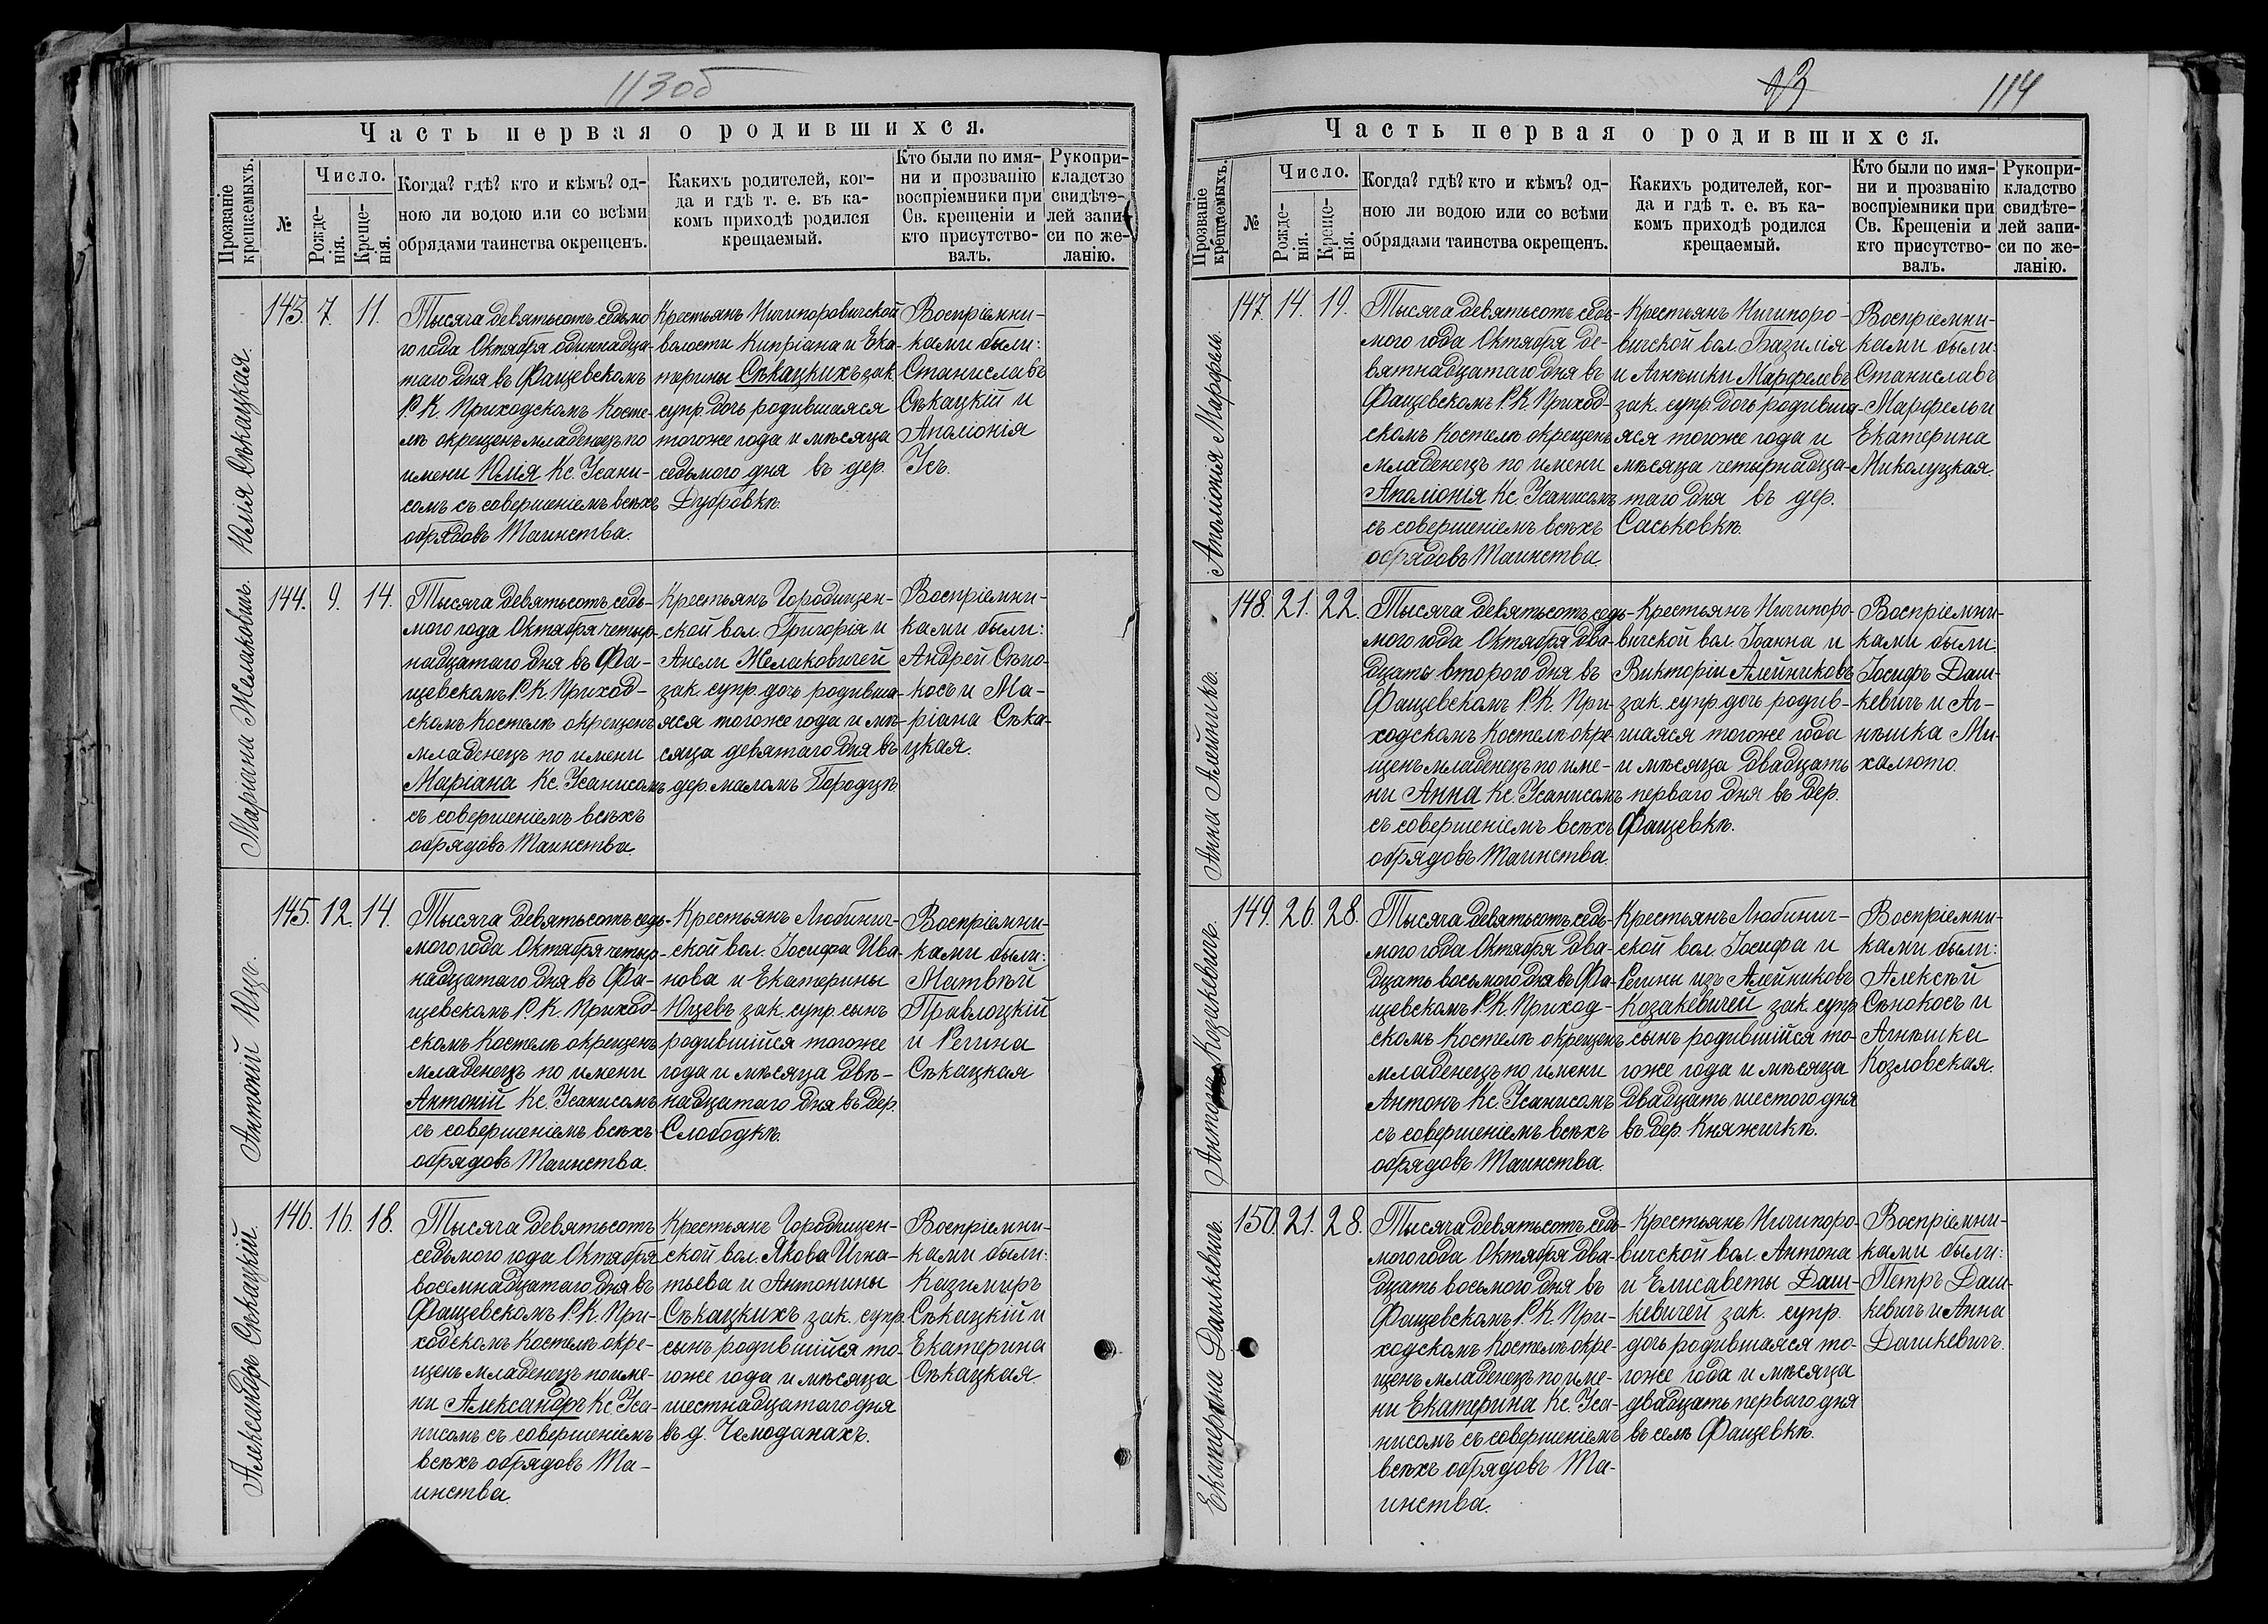 113об
Часть первая о родившихся.
Прозваніе крещаемыхъ.
№
Число.
Рожде-
нія.
Креще-
нія.
Когда? гдѣ? кто и кѣмъ? од-
ною ли водою или со всѣми
обрядами таинства окрещенъ.
Какихъ родителей, ког-
да и гдѣ т. е. въ ка-
комъ приходѣ родился
крещаемый.
Кто были по имя-
ни и прозванію
воспріемники при
Св. крещеніи и
кто присутство-
валъ.
Рукопри-
кладство
свидѣте-
лей запи-
си по же-
ланію.
Юлія Сѣкацкая.
143. 7. 11.
Тысяча девятьсотъ седьмо
го года Октября одиннадца-
таго дня въ Фащевскомъ
Р. К. Приходскомъ Косте-
лѣ окрещенъ младенецъ по
имени Юлія Кс. Усани-
сомъ съ совершеніемъ всѣхъ
обрядовъ Таинства.
Крестьянъ Ничипоровичской
волости Кипріана и Ека-
терины Сѣкацкихъ зак.
супр. дочь родившаяся
тогоже года и мѣсяца
седьмого дня въ дер.
Дубровкѣ.
Воспріемни-
ками были:
Станиславъ
Сѣкацкій и
Аполіонія
Усъ.
Маріана Желаковичъ.
144. 9. 14.
Тысяча девятьсотъ седь-
мого года Октября четыр-
надцатаго дня въ Фа-
щевскомъ Р. К. Приход-
скомъ Костелѣ окрещенъ
младенецъ по имени
Маріана Кс. Усанисомъ
съ совершеніемъ всѣхъ
обрядовъ Таинства.
Крестьянъ Городищен-
ской вол. Григорія и
Анели Желаковичей
зак. супр. дочь родивша-
яся тогоже года и мѣ-
сяца девятаго дня въ
дер. маломъ Городцѣ
Воспріемни-
ками были:
Андрей Сѣно-
косъ и Ма-
ріана Сѣка-
цкая.
Антоній Юцъ.
145. 12. 14.
Тысяча девятьсотъ седь-
мого года Октября четыр-
надцатаго дня въ Фа-
щевскомъ Р. К. Приход-
скомъ Костелѣ окрещенъ
младенецъ по имени
Антоній Кс. Усанисомъ
съ совершеніемъ всѣхъ
обрядовъ Таинства.
Крестьянъ Любинич-
ской вол. Іосифа Ива-
нова и Екатерины
Юцевъ зак. супр. сынъ
родившійся тогоже
года и мѣсяца двѣ-
надцатаго дня въ дер.
Слободкѣ.
Воспріемни-
ками были:
Матвѣй
Правлоцкій
и Регина
Сѣкацкая
Александръ Сѣкацкій.
146. 16. 18.
Тысяча девятьсотъ
седьмого года Октября
восемнадцатаго дня въ
Фащевскомъ Р. К. При-
ходскомъ Костелѣ окре-
щенъ младенецъ по име-
ни Александръ Кс. Уса-
нисомъ съ совершеніемъ
всѣхъ обрядовъ Та-
инства.
Крестьянъ Городищен-
ской вол. Якова Игна-
тьева и Антонины
Сѣкацкихъ зак. супр.
сынъ родившійся то-
гоже года и мѣсяца
шестнадцатаго дня
въ д. Чемоданахъ.
Воспріемни-
ками были:
Казимиръ
Сѣкацкій и
Екатерина
Сѣкацкая.
114
Часть первая о родившихся.
Прозваніе крещаемыхъ.
№
Число.
Рожде-
нія.
Креще-
нія.
Когда? гдѣ? кто и кѣмъ? од-
ною ли водою или со всѣми
обрядами таинства окрещенъ.
Какихъ родителей, ког-
да и гдѣ т. е. въ ка-
комъ приходѣ родился
крещаемый.
Кто были по имя-
ни и прозванію
воспріемники при
Св. Крещеніи и
кто присутство-
валъ.
Рукопри-
кладство
свидѣте-
лей запи-
си по же-
ланію.
Аполіонія Марфель.
147. 14. 19.
Тысяча девятьсотъ седь-
мого года Октября де-
вятнадцатаго дня въ
Фащевскомъ Р. К. Приход-
скомъ Костелѣ окрещенъ
младенецъ по имени
Аполіонія Кс. Усанисомъ
съ совершеніемъ всѣхъ
обрядовъ Таинства
Крестьянъ Ничипоро-
вичской вол. Базилія
и Агнѣшки Марфелевъ
зак. супр. дочь родивша-
яся тогоже года и
мѣсяца четырнадца-
таго дня въ дер.
Саськовкѣ.
Воспріемни-
ками были:
Станиславъ
Марфель и
Екатерина
Миколуцкая.
Анна Алейникъ.
148. 21. 22.
Тысяча девятьсотъ седь-
мого года Октября два-
дцать второго дня въ
Фащевскомъ Р. К. При-
ходскомъ Костелѣ окре-
щенъ младенецъ по име-
ни Анна Кс. Усанисомъ
съ совершеніемъ всѣхъ
обрядовъ Таинства.
Крестьянъ Ничипоро-
вичской вол. Іоанна и
Викторіи Алейниковъ
зак. супр. дочь родив-
шаяся тогоже года
и мѣсяца двадцать
перваго дня въ дер.
Фащевкѣ.
Воспріемни-
ками были:
Іосифъ Даш-
кевичъ и Аг-
нѣшка Ми-
халюто.
Антонъ Козакевичъ.
149. 26. 28.
Тысяча девятьсотъ седь-
мого года Октября два-
дцать восьмого дня въ Фа-
щевскомъ Р. К. Приход-
скомъ Костелѣ окрещенъ
младенецъ по имени
Антонъ Кс. Усанисомъ
съ совершеніемъ всѣхъ
обрядовъ Таинства.
Крестьянъ Любинич-
ской вол. Іосифа и
Регины изъ Алейниковъ
Козакевичей зак. супр.
сынъ родившійся то-
гоже года и мѣсяца
двадцать шестого дня
въ дер. Княжичкѣ.
Воспріемни-
ками были:
Алексѣй
Сѣнокосъ и
Агнѣшка
Козловская.
Екатерина Дашкевичъ.
150. 21. 28.
Тысяча девятьсотъ седь-
мого года Октября два-
дцать восьмого дня въ
Фащевскомъ Р. К. При-
ходскомъ Костелѣ окре-
щенъ младенецъ по име-
ни Екатерина Кс. Уса-
нисомъ съ совершеніемъ
всѣхъ обрядовъ Та-
инства.
Крестьянъ Ничипоро-
вичской вол. Антона
и Елисаветы Даш-
кевичей зак. супр.
дочь родившаяся то-
гоже года и мѣсяца
двадцать перваго дня
въ селѣ Фащевкѣ.
Воспріемни-
ками были:
Петръ Даш-
кевичъ и Анна
Дашкевичъ.